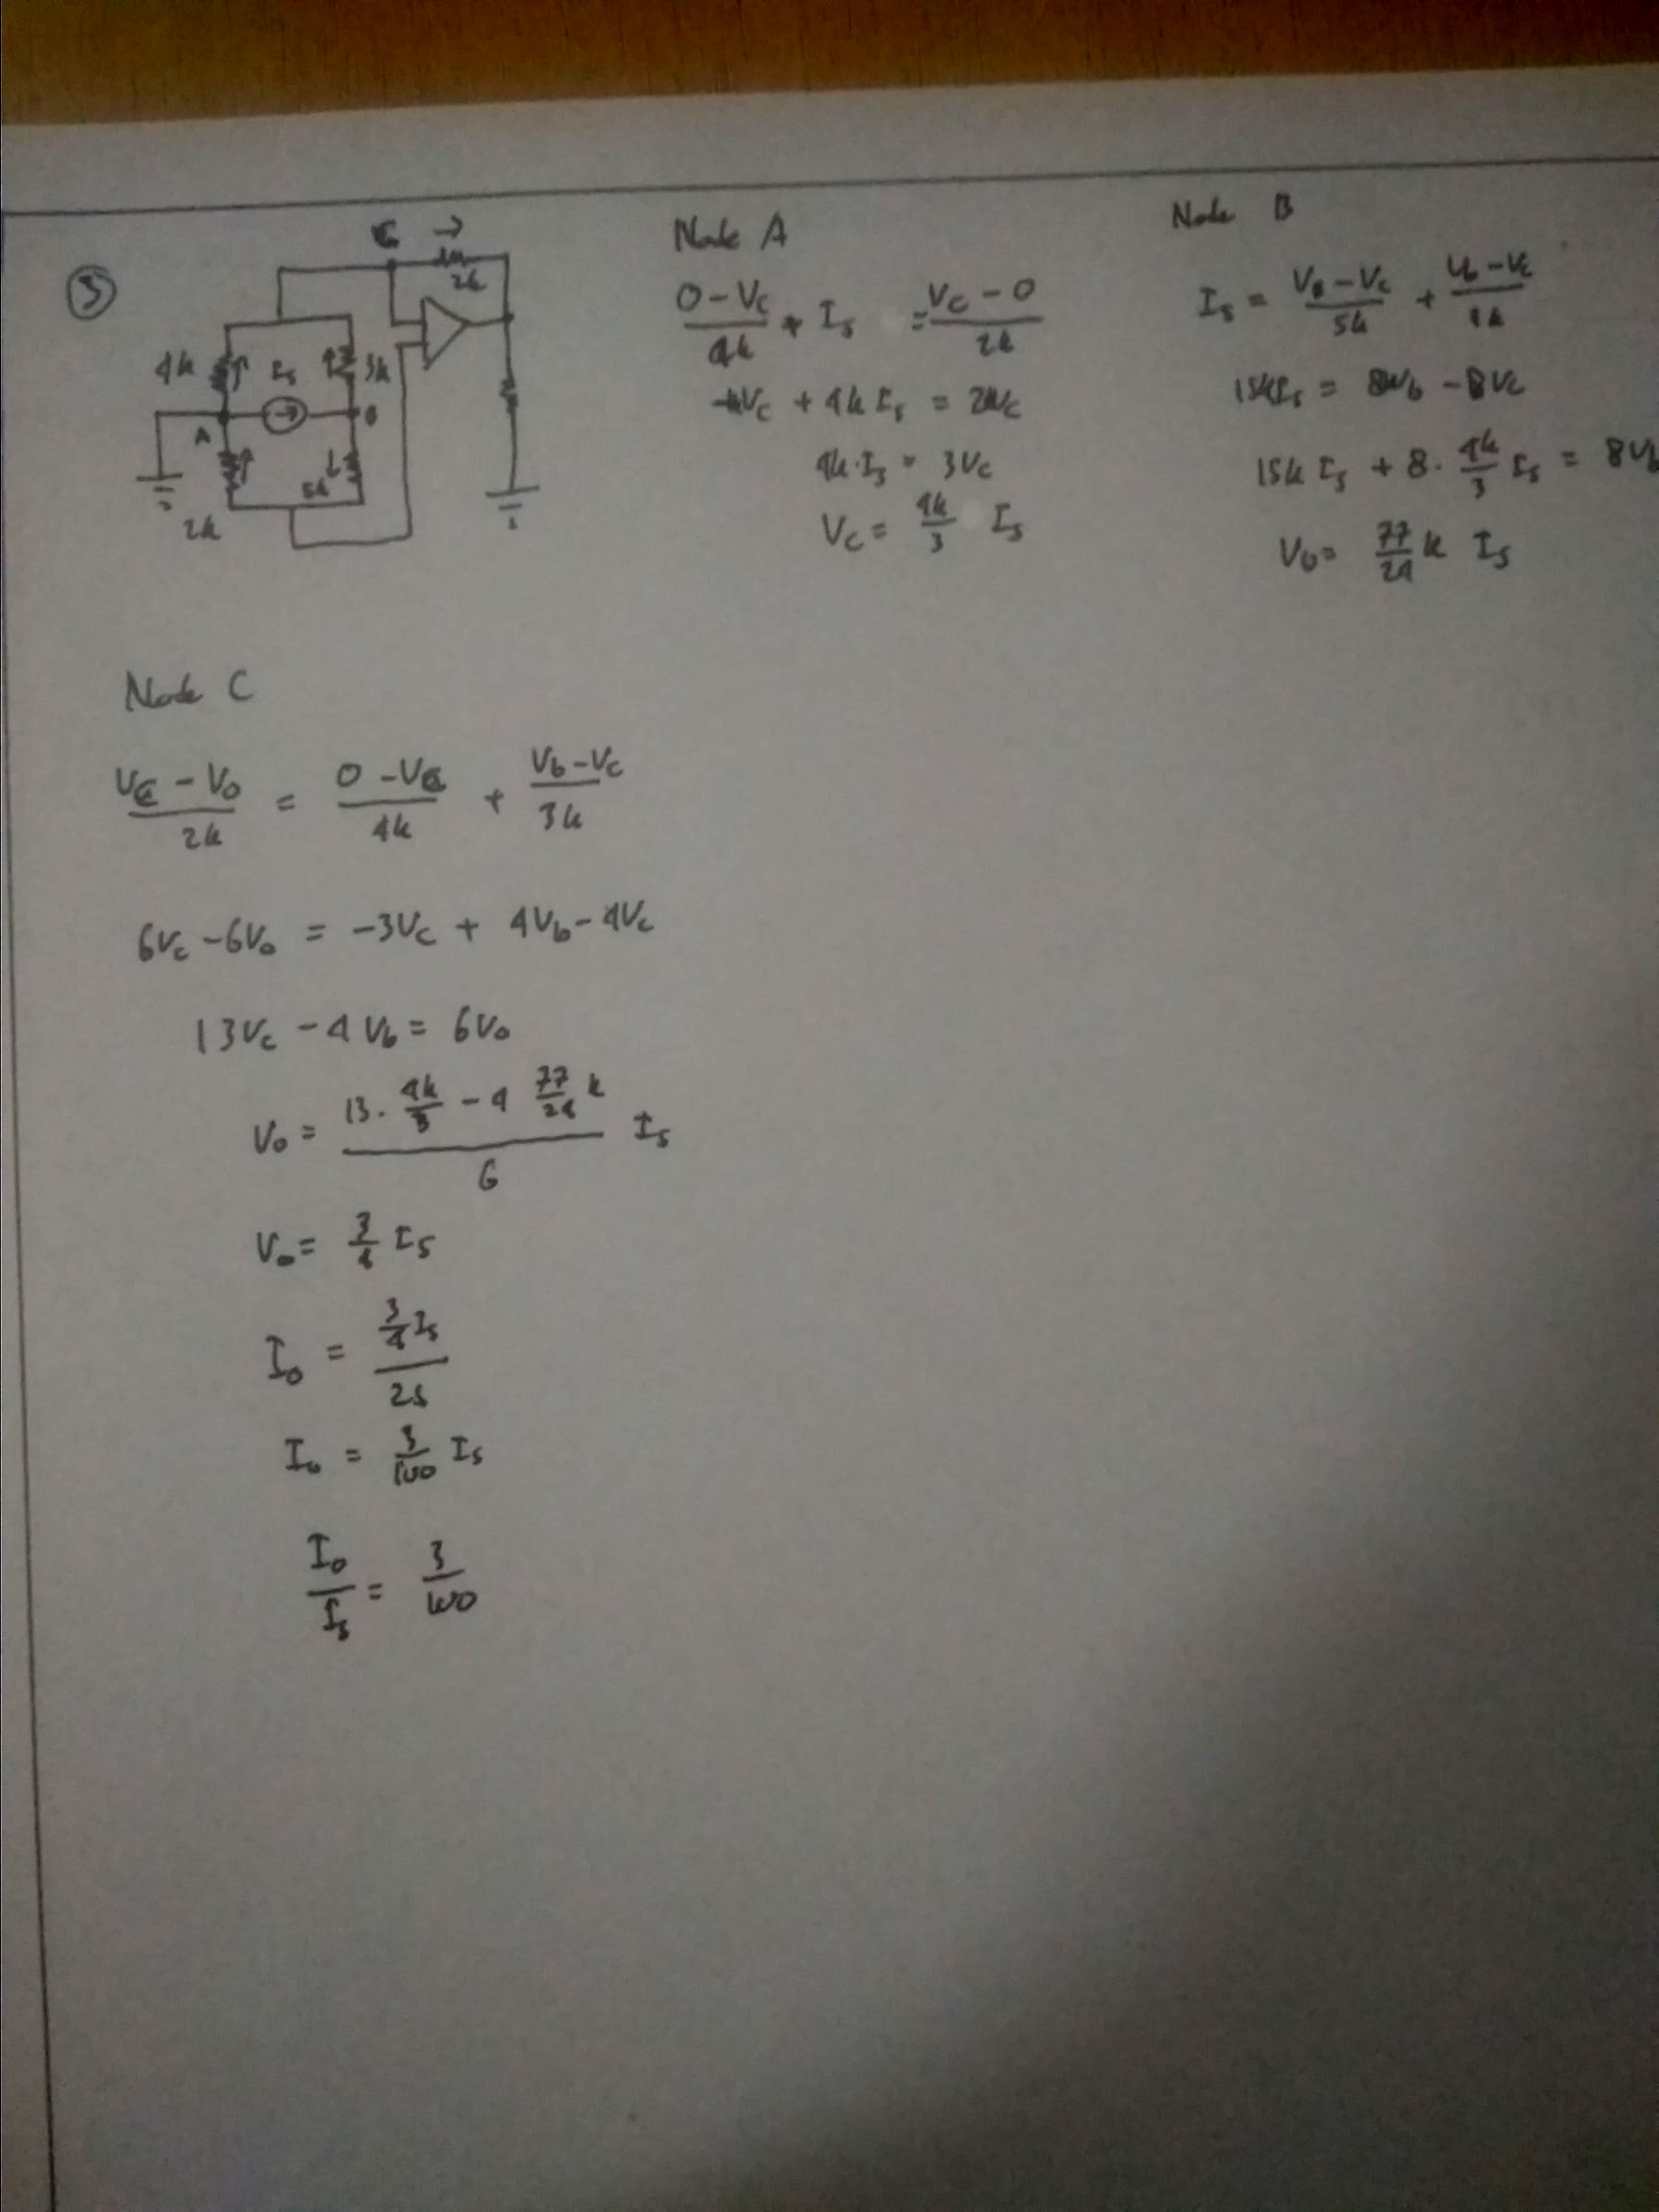 ③
C →
2k
4k Is 3k
A B
5k
2k
Node A
(0 - Vc)/4k + Is = (Vc - 0)/2k
-Vc + 4k Is = 2Vc
4k·Is = 3Vc
Vc = 4k/3 Is
Node B
Is = (VB - Vc)/5k + (Vb - Vc)/3k
15kIs = 8Vb - 8Vc
15k Is + 8 · 4k/3 Is = 8Vb
Vb = 77/24 k Is
Node C
(Vc - Vo)/2k = (0 - Vc)/4k + (Vb - Vc)/3k
6Vc - 6Vo = -3Vc + 4Vb - 4Vc
13Vc - 4Vb = 6Vo
Vo = (13 · 4k/3 - 4 77/24 k)/6 Is
Vo = 3/4 Is
Io = (3/4 Is)/25
Io = 3/100 Is
Io/Is = 3/100